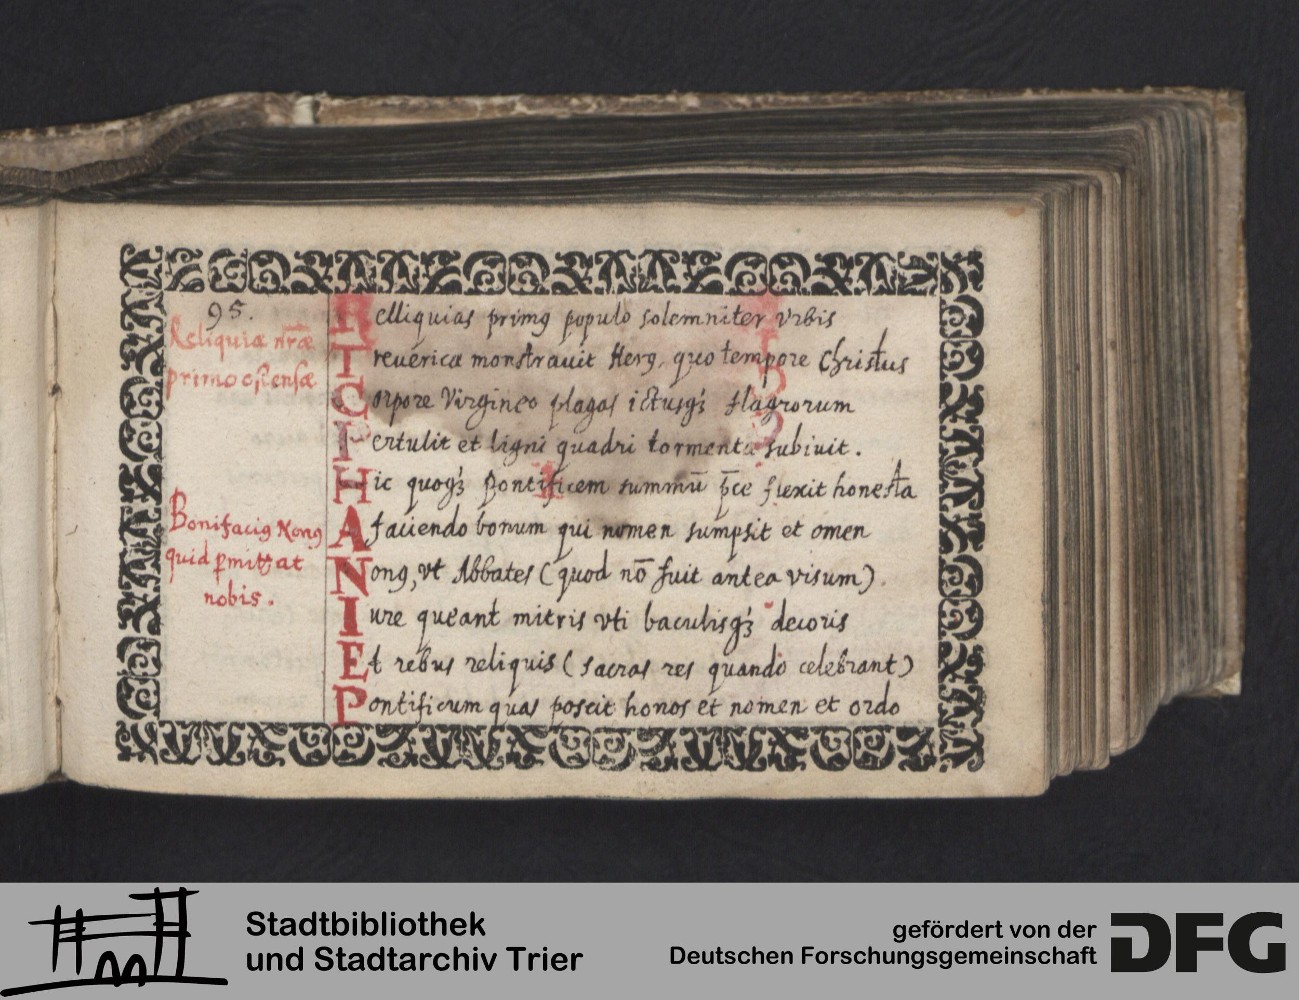 95.
Reliquiæ nr̄æ
primo ostensæ
Relliquias primꝰ populo solemniter vrbis
Treuericæ monstrauit Herꝰ, quo tempore Christus
Corpore Virgineo plagas ictusqꝫ flagrorum
Pertulit et ligni quadri tormenta subiuit.
Hic quoqꝫ Pontificem summū p̄ce flexit honesta
Bonifaciꝰ Nonꝰ
quid ꝑmittat
nobis.
A faciendo bonum qui nomen sumpsit et omen
Nonꝰ, vt Abbates (quod nō fuit antea visum).
Iure queant mitris vti baculisqꝫ decoris
Et rebus reliquis (sacras res quando celebrant)
Pontificum quas poscit honos et nomen et ordo
Stadtbibliothek
und Stadtarchiv Trier
gefördert von der
Deutschen Forschungsgemeinschaft
DFG